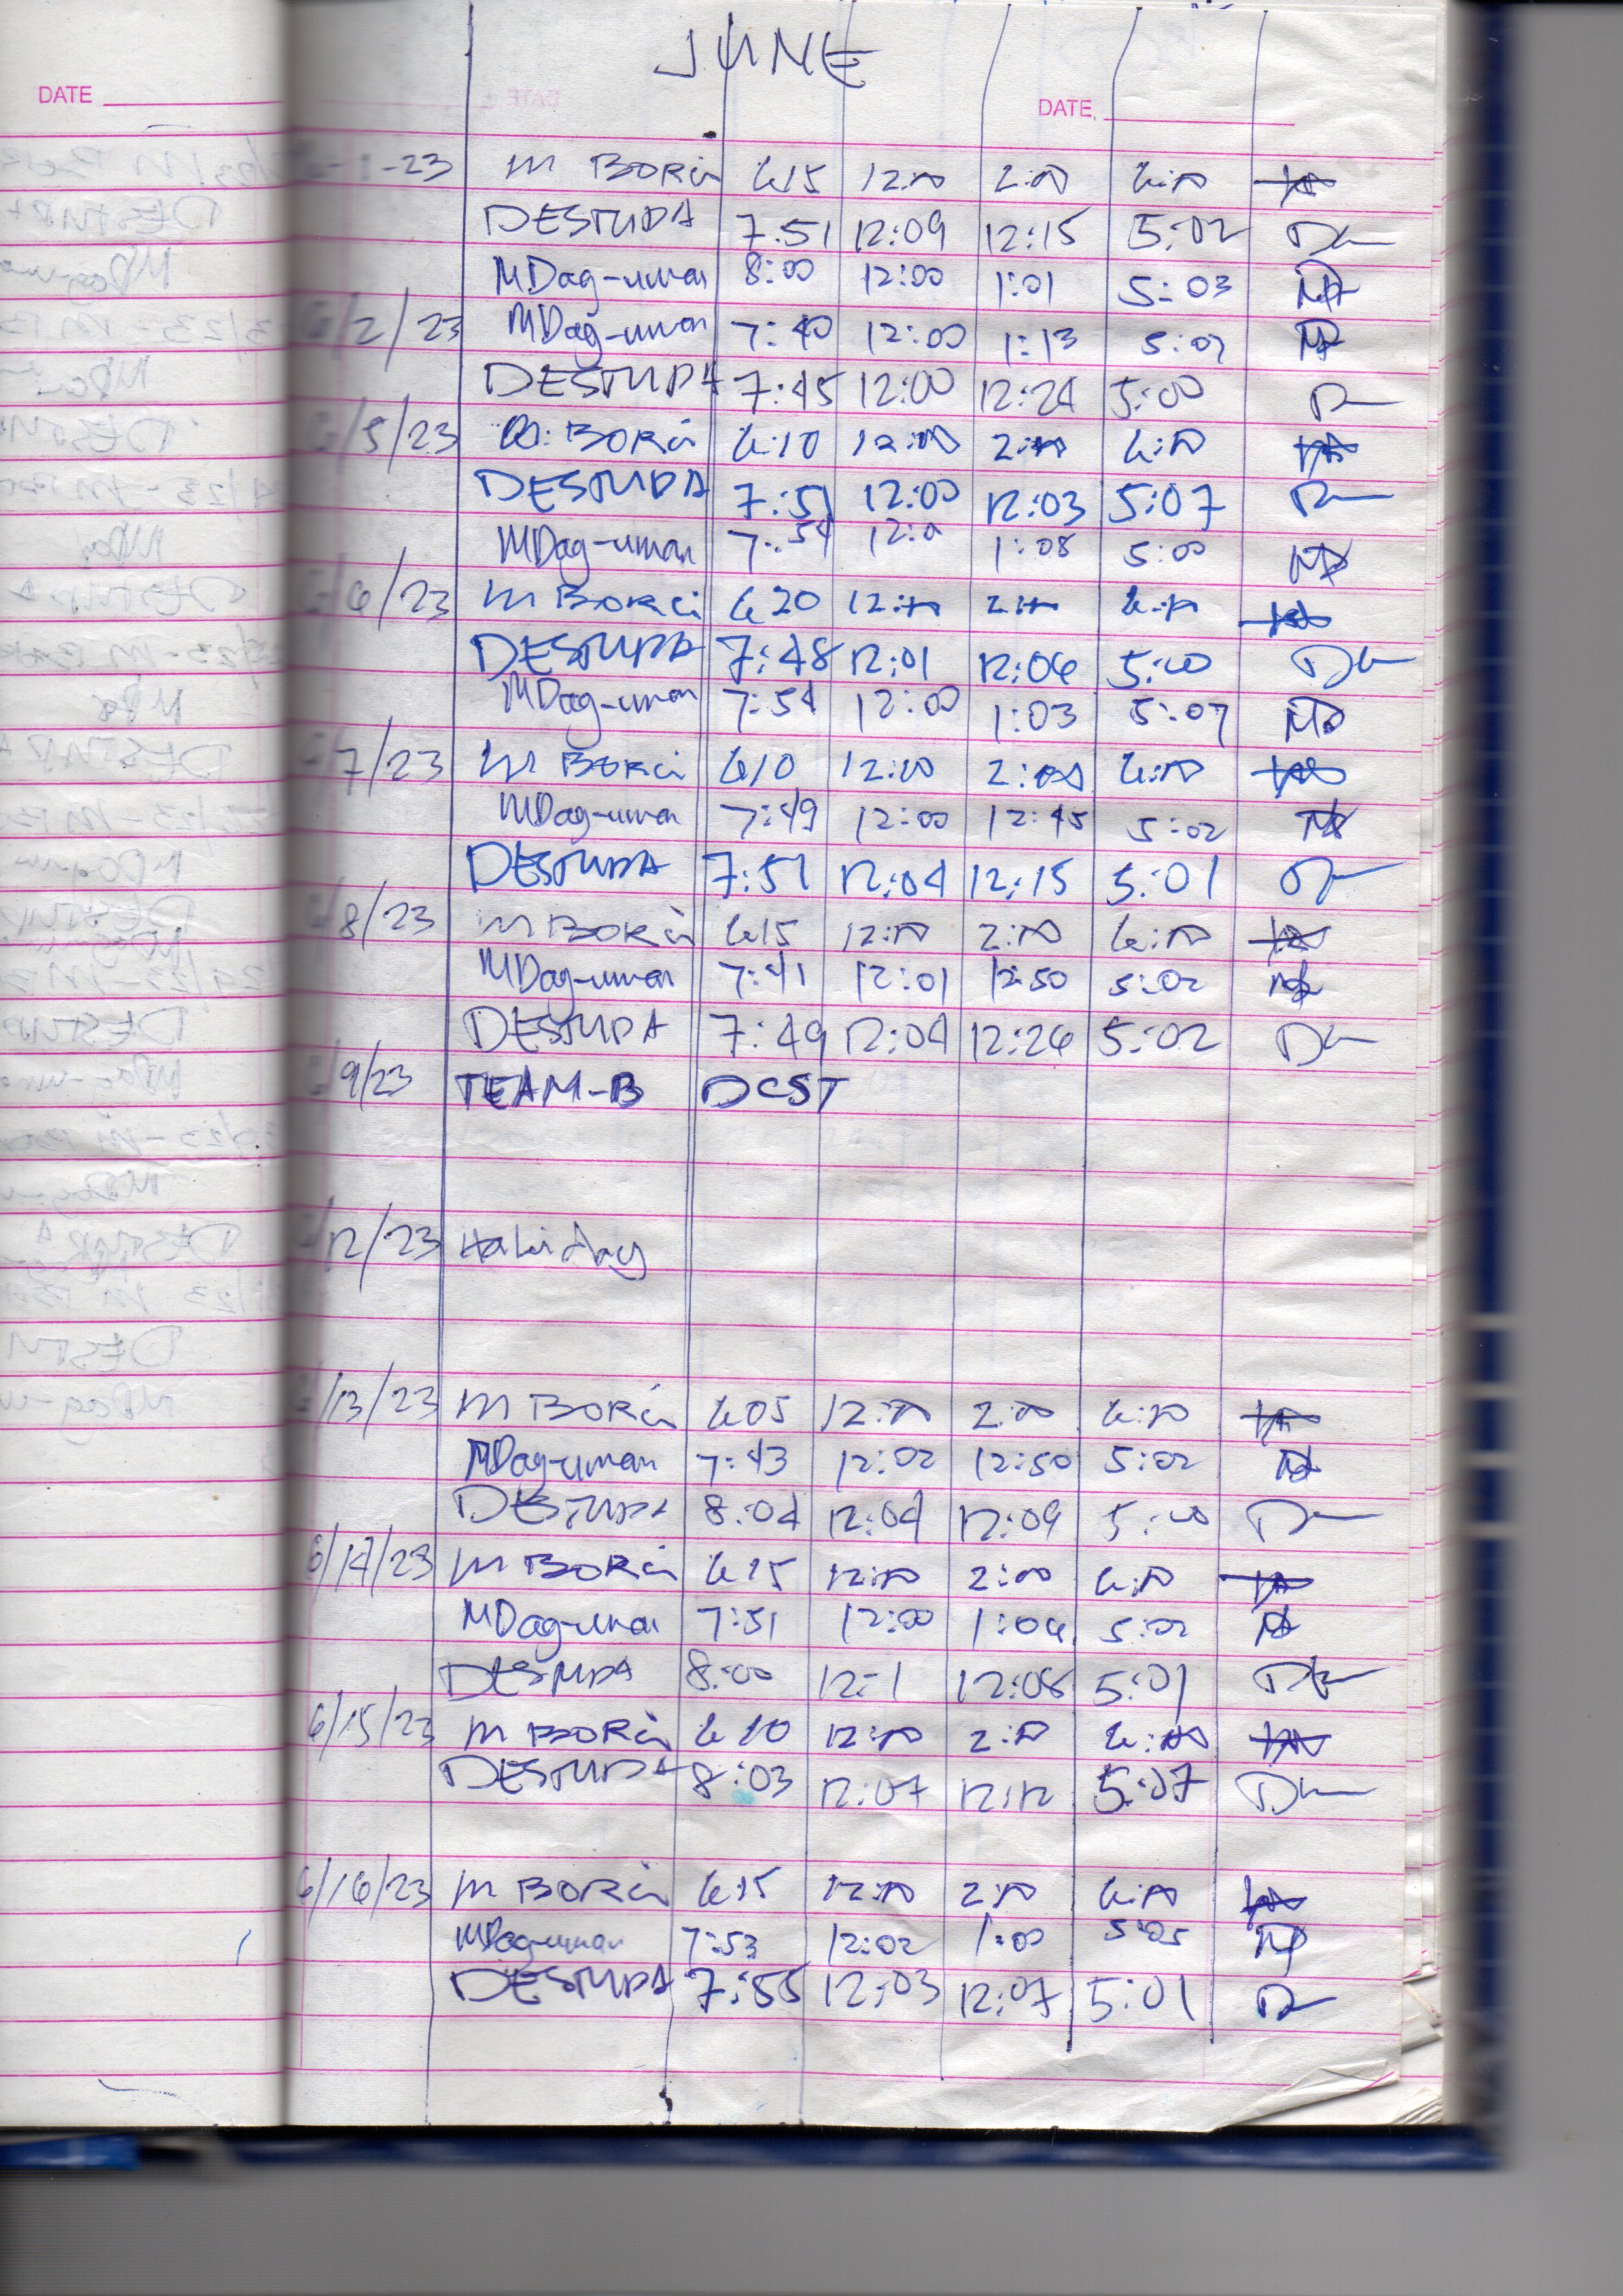 JUNE
DATE
DATE
1-23 M BORCI 6:15 12:00 2:00 6:00
DESTUPA 7:51 12:09 12:15 5:02
MDag-uman 8:00 12:00 1:01 5:03
6/2/23 MDag-uman 7:40 12:00 1:13 5:07
DESTUPA 7:45 12:00 12:24 5:00
6/5/23 BORCI 6:10 12:00 2:00 6:00
DESTUPA 7:51 12:00 12:03 5:07
MDag-uman 7:54 1:08 5:00
6/6/23 M BORCI 6:20 12:00 2:00 6:00
DESTUPA 7:48 12:01 12:06 5:00
MDag-uman 7:54 12:00 1:03 5:07
6/7/23 M BORCI 6:10 12:00 2:00 6:00
MDag-uman 7:49 12:00 12:45 5:02
DESTUPA 7:51 12:04 12:15 5:01
6/8/23 M BORCI 6:15 12:00 2:00 6:00
MDag-uman 7:41 12:01 12:50 5:02
DESTUPA 7:49 12:04 12:26 5:02
6/9/23 TEAM-B DCST
6/12/23 Holiday
6/13/23 M BORCI 6:05 12:00 2:00 6:00
MDag-uman 7:43 12:02 12:50 5:02
DESTUPA 8:04 12:04 12:09 5:00
6/14/23 M BORCI 6:15 12:00 2:00 6:00
MDag-uman 7:51 12:00 1:06 5:02
DESTUPA 8:00 12:1 12:08 5:01
6/15/23 M BORCI 6:10 12:00 2:00 6:00
DESTUPA 8:03 12:07 12:12 5:07
6/16/23 M BORCI 6:15 12:00 2:00 6:00
MDag-uman 7:53 12:02 1:00 5:05
DESTUPA 7:55 12:03 12:07 5:01